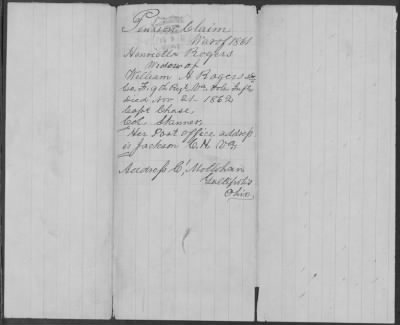 Pension Claim
War of 1861
Henrietta Rogers
Widow of
William A Rogers
Co. F. 9th Regt Va. Vols Inft
Died Nov 21 1862
Capt Chase,
Col. Skinner,
Her Post office address
is Jackson C.H. Va,
Address C,
Gallipolis
Ohio.